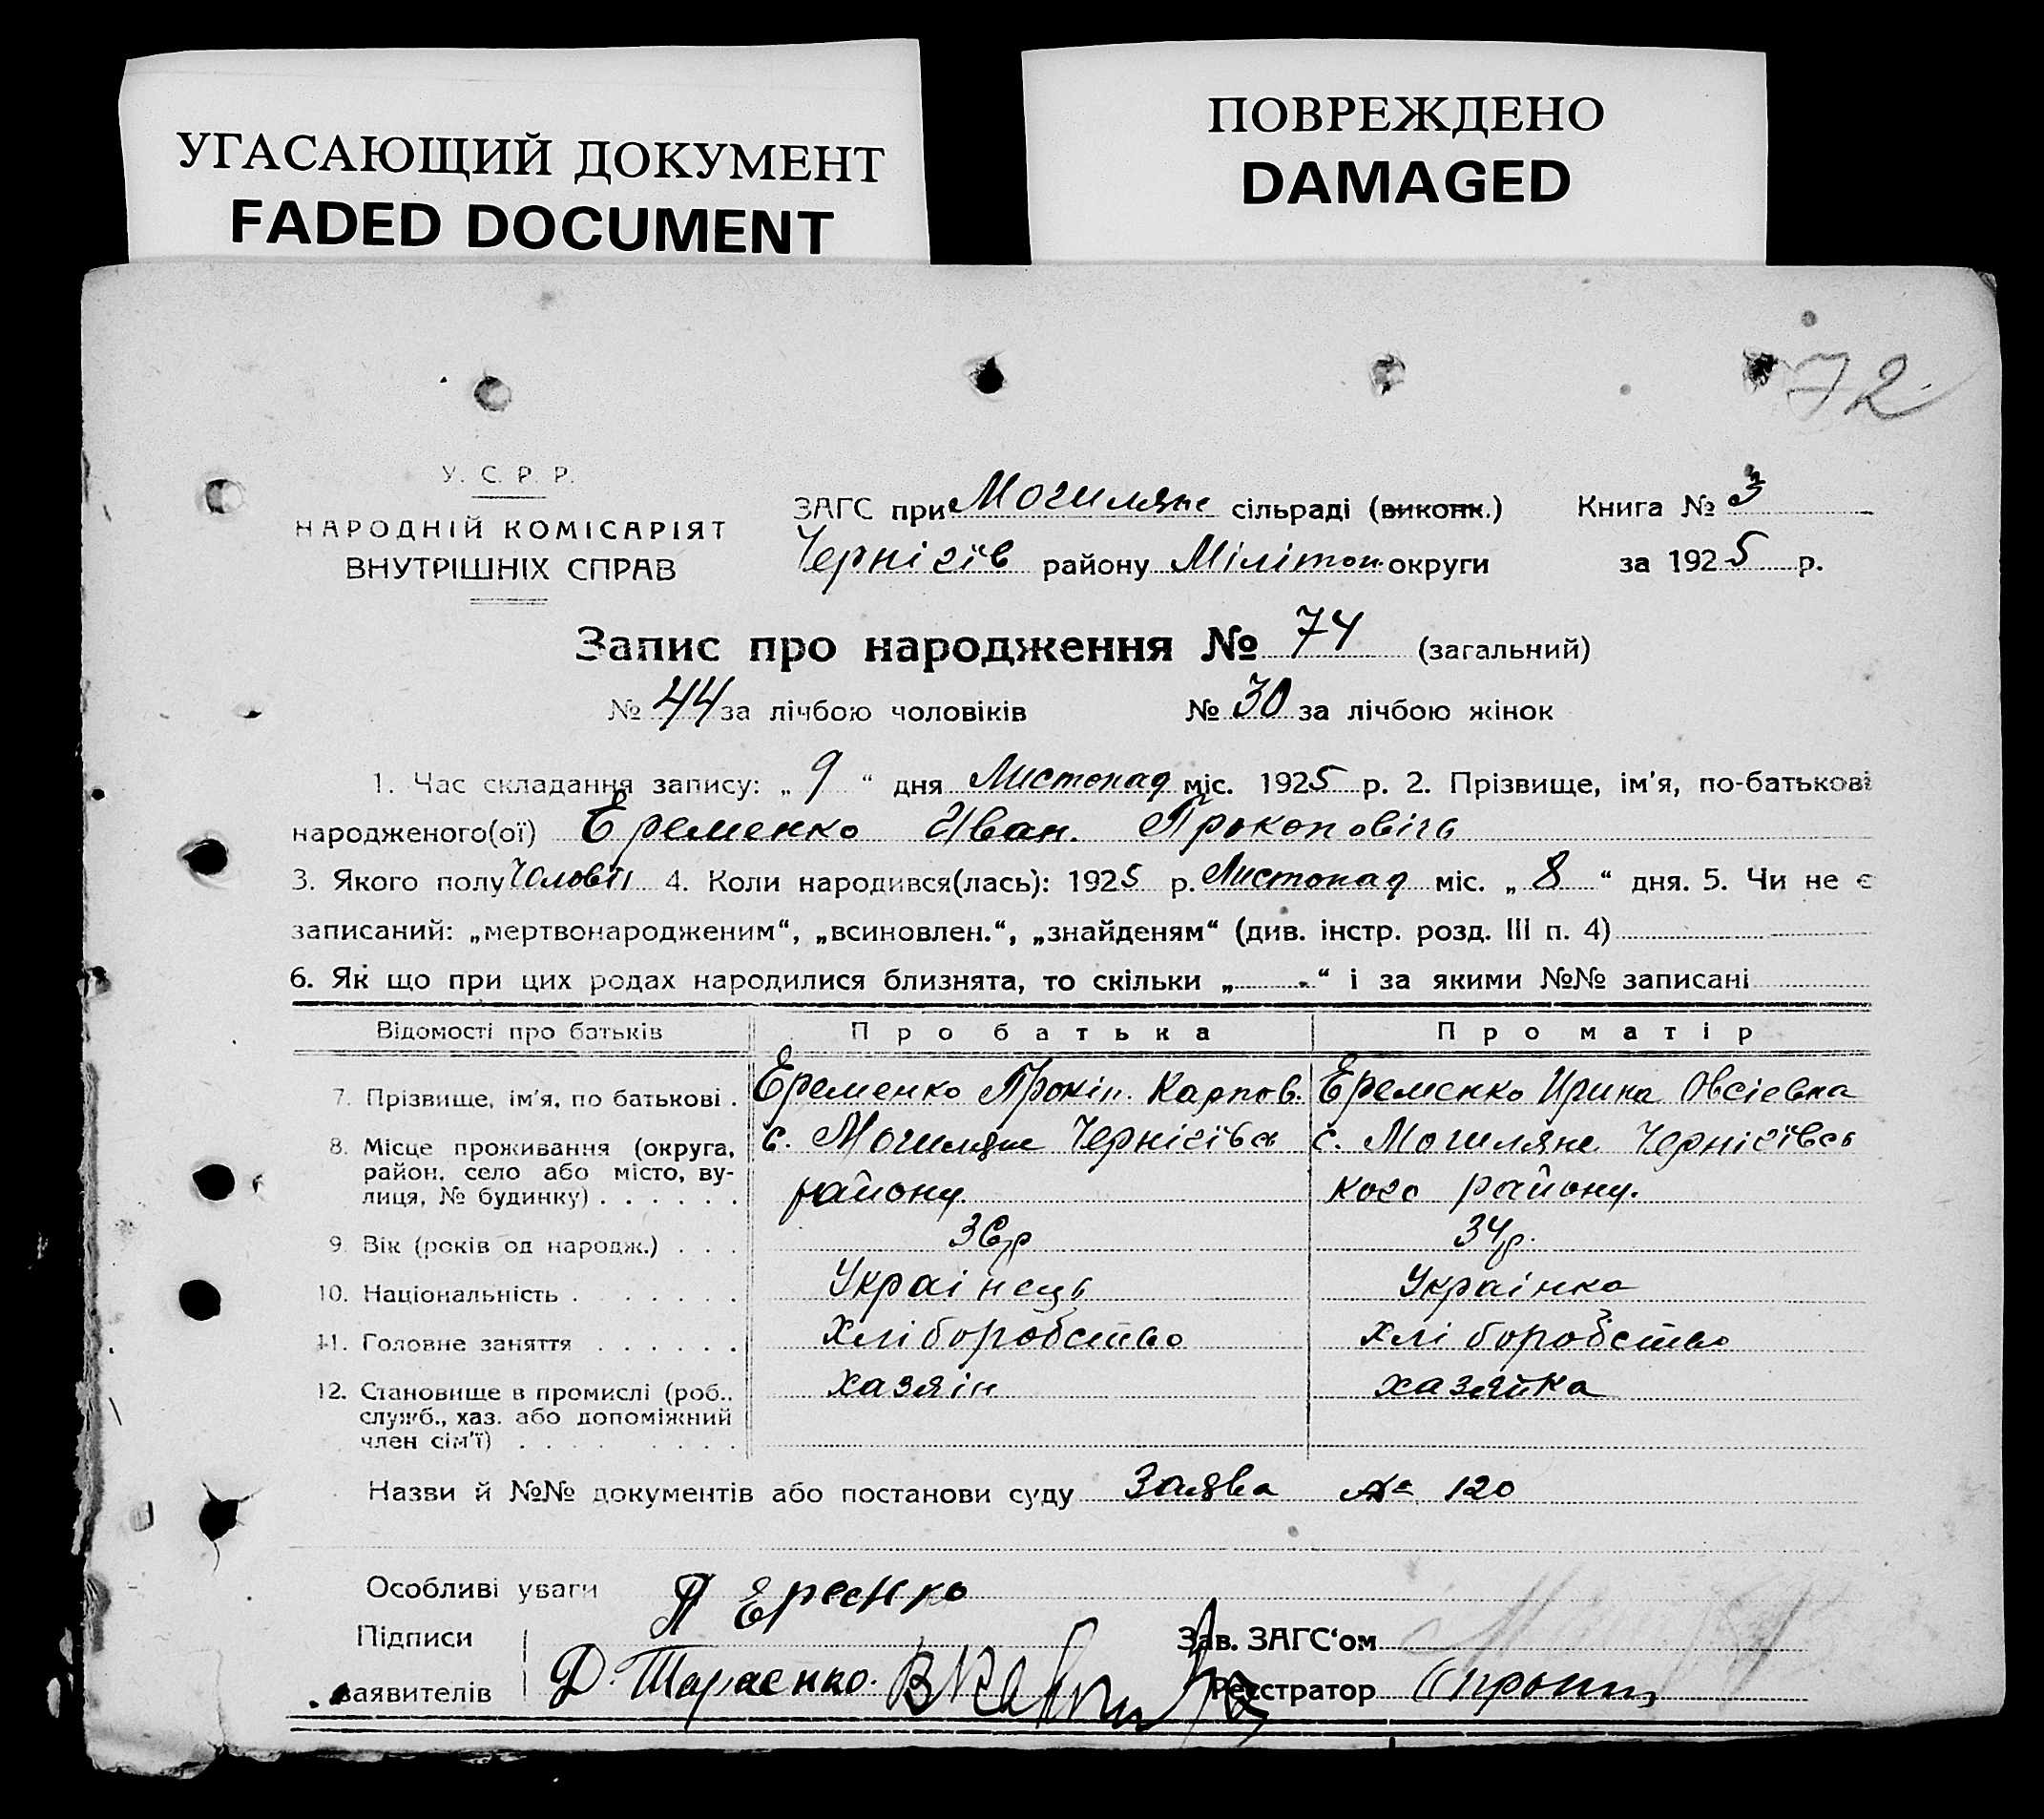 УГАСАЮЩИЙ ДОКУМЕНТ
FADED DOCUMENT
ПОВРЕЖДЕНО
DAMAGED
72
У. С. Р. Р.
НАРОДНІЙ КОМІСАРІЯТ
ВНУТРІШНІХ СПРАВ
ЗАГС при Могиляне сільраді (виконк.)
Чернігів району Мілітоп. округи
Книга № 3
за 1925 р.
Запис про народження № 74 (загальний)
№ 44 за лічбою чоловіків № 30 за лічбою жінок
1. Час складання запису: „ 9 “ дня Листопад міс. 1925 р. 2. Прізвище, ім'я, по-батькові
народженого(ої) Еременко Иван. Прокоповічь
3. Якого полу 4. Коли народився(лась): 1925 р. Листопад міс. „ 8 “ дня. 5. Чи не є
записаний: „мертвонародженим“, „всиновлен.“, „знайденям“ (див. інстр. розд. III п. 4)
6. Як що при цих родах народилися близнята, то скільки „ “ і за якими №№ записані
Відомості про батьків Про батька Про матір
7. Прізвище, ім'я, по батькові . Еременко Прокіп. Карпов. Еременко Ирина Овсіевна
8. Місце проживання (округа, район, село або місто, вулиця, № будинку) . . . . . . с. Могиляне Чернігівсь району. с. Могиляне Чернігівсь кого району.
9. Вік (років од народж.) . . . 36р 34р.
10. Національність . . . . . . . Украінець Украінка
11. Головне заняття . . . . . . Хліборобство Хліборобство
12. Становище в промислі (роб., служб., хаз. або допоміжний член сім'ї) . . . . . . . . хазяін хазяйка
Назви й №№ документів або постанови суду Заява № 120
Особливі уваги П Ереенко
Підписи
заявителів Д. Тараенко.
Зав. ЗАГС'ом
Реєстратор